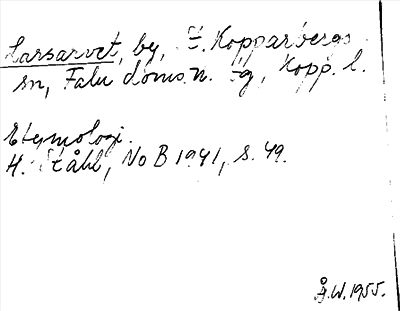 Larsarvet, by, St. Kopparbergs
sn, Falu doms.n. tg, Kopp. l.
Etymologi.
H. Ståhl, NoB 1941, s. 49.
Å.W. 1955.